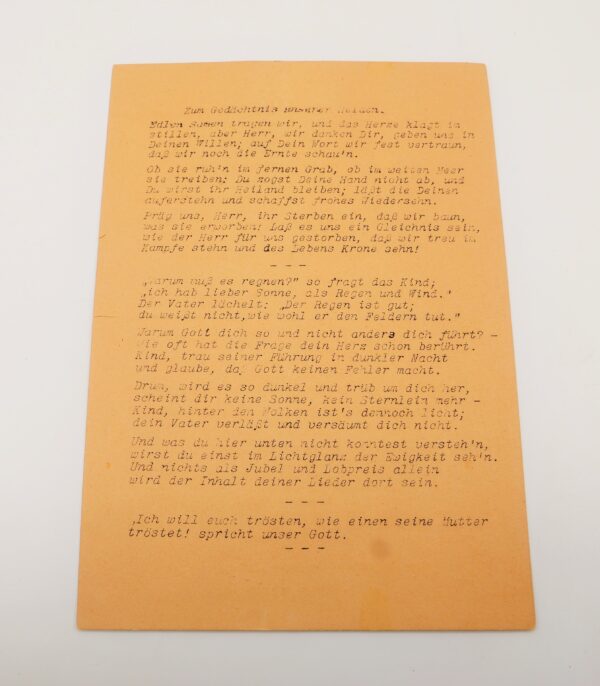 Zum Gedächtnis unserer Helden.
Edlen Samen tragen wir, und das Herze klagt im
stillen, aber Herr, wir danken Dir, geben uns in
Deinen Willen; auf Dein Wort wir fest vertraun,
daß wir noch die Ernte schau'n.
Ob sie ruh'n im fernen Grab, ob im weiten Meer
sie treiben: Du zogst Deine Hand nicht ab, und
Du wirst ihr Heiland bleiben; läßt die Deinen
auferstehn und schaffst frohes Wiedersehn.
Präg uns, Herr, ihr Sterben ein, daß wir baun,
was sie erworben! Laß es uns ein Gleichnis sein,
wie der Herr für uns gestorben, daß wir treu im
Kampfe stehn und des Lebens Krone sehn!
- - -
„Warum muß es regnen?" so fragt das Kind;
„ich hab lieber Sonne, als Regen und Wind."
Der Vater lächelt: „Der Regen ist gut;
du weißt nicht,wie wohl er den Feldern tut."
Warum Gott dich so und nicht anders dich führt? -
Wie oft hat die Frage dein Herz schon berührt.
Kind, trau seiner Führung in dunkler Nacht
und glaube, daß Gott keinen Fehler macht.
Drum, wird es so dunkel und trüb um dich her,
scheint dir keine Sonne, kein Sternlein mehr -
Kind, hinter den Wolken ist's dennoch licht;
dein Vater verläßt und versäumt dich nicht.
Und was du hier unten nicht konntest versteh'n,
wirst du einst im Lichtglanz der Ewigkeit seh'n.
Und nichts als Jubel und Lobpreis allein
wird der Inhalt deiner Lieder dort sein.
- - -
„Ich will euch trösten, wie einen seine Mutter
tröstet! spricht unser Gott.
- - -